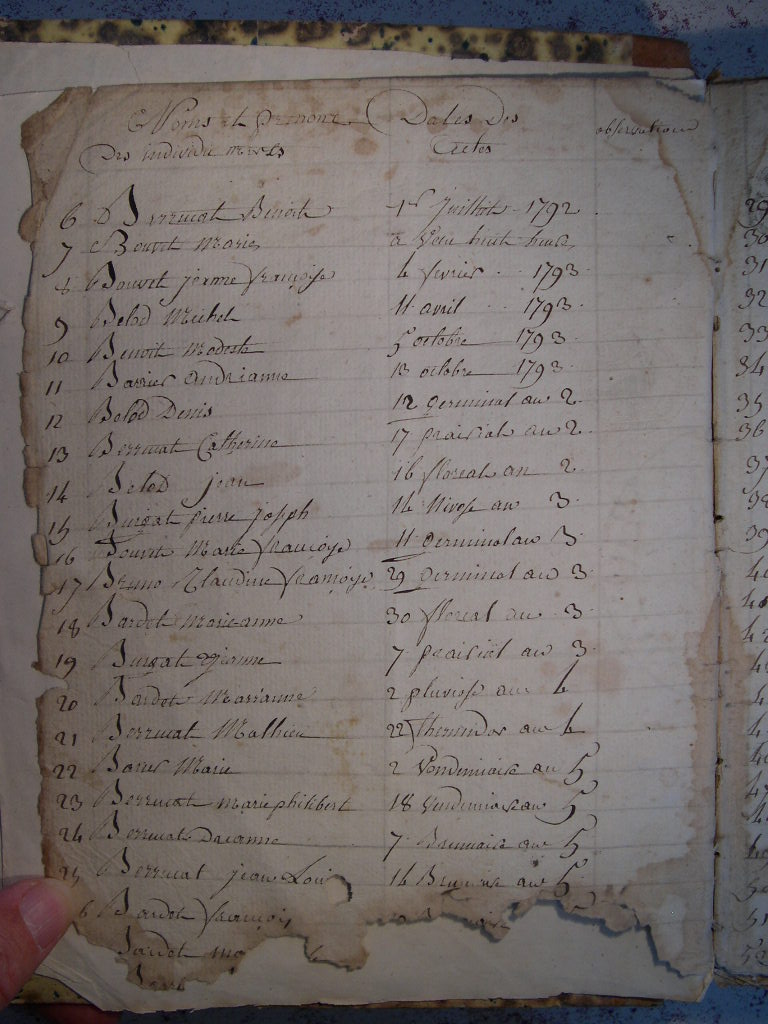 Noms et prenoms Dates Des
Des individu nés Actes observations
6 Berruat Benoite 1er Juillet 1792
7 Bouvet Marie
8 Bouvet jeanne françoise 4 fevrier 1793
9 Belod Michel 11 avril 1793
10 Benoit Modeste 5 octobre 1793
11 Barrier andrianne 13 octobre 1793
12 Belod Denis 12 germinal an 2
13 Berruat Catherine 17 prairial an 2
14 Belod jean 16 floreal an 2
15 Burgat pierre joseph 14 Nivose an 3
16 Bouvet Marie françoise 11 Germinal an 3
17 Bruno Claudine françoise 29 germinal an 3
18 Bardet marieanne 30 floreal an 3
19 Burgat jeanne 7 prairial an 3
20 Bardet Marianne 2 pluviose an 4
21 Berruat Mathieu 22 thermidor an 4
22 Barier Marie 2 Vendemiaire an 5
23 Berruat marie philibert 18 Vendemiaire an 5
24 Berruat 7 Brumaire an 5
25 Berruat jean Loui 14 Brumaire an 5
6 Bardet françois
Bardet
29
30
31
32
33
34
35
36
37
38
39
51
52